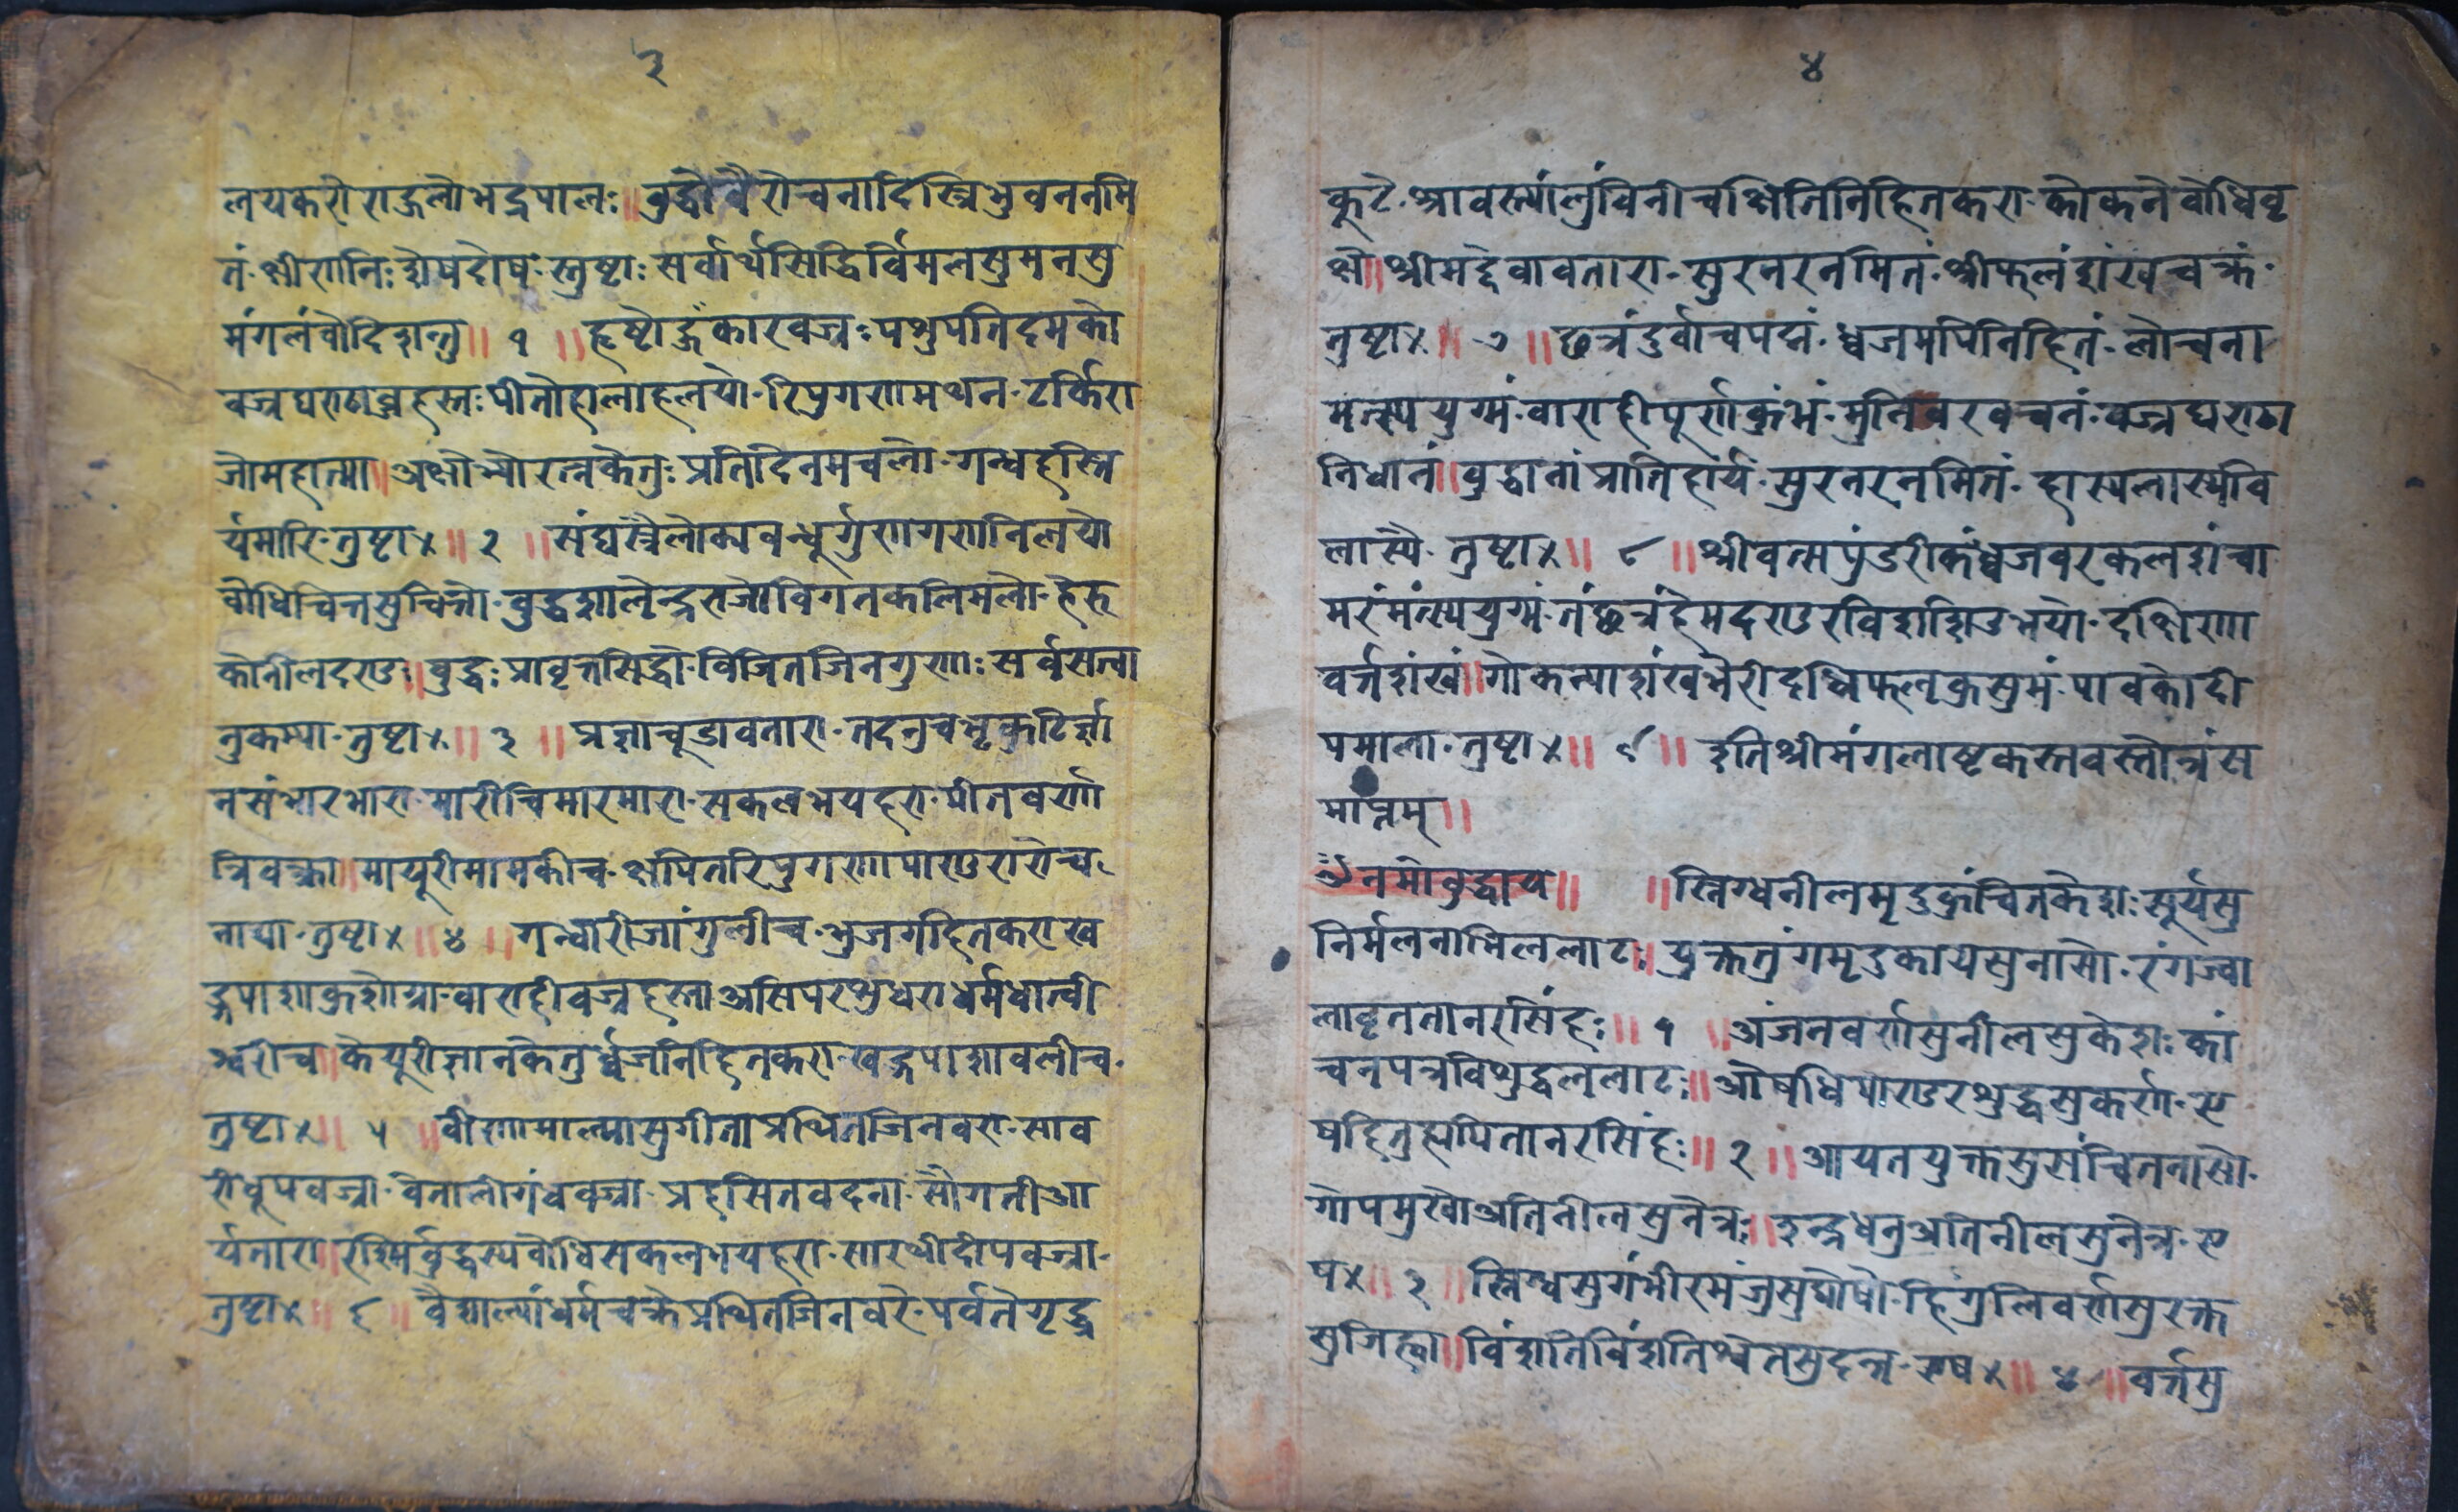 ३
लयकरो राहुलो भद्रपालः॥ बुद्धो वैरोचनादिस्त्रिभुवननमि
तं क्षीणनिःशेषदोषं स्तुष्टाः सर्वार्थसिद्धिर्विमलसुमनसु
मंगलंवोदिशन्तु॥ १ ॥ हृष्टोहुँकारवज्रः पशुपतिदमको
वज्रघण्ठाब्जहस्तः पीतोहालाहलयो रिपुगणमथन टर्किरा
जोमहात्मा॥ अक्षोभ्योरत्नकेतुः प्रतिदिनमचलो गन्धहस्ति
र्यमारि तुष्टा४॥ २ ॥ संघस्त्रैलोक्यबन्धूर्गुणगणनिलयो
बोधिचित्तसुचित्तो बुद्धशालेन्द्रराजोविगतकलिमलो हेरु
कोनीलदण्डः॥ बुद्धः प्रावृत्तसिद्धो विजितजिनगुणः सर्वसत्वा
नुकम्पा तुष्टा४॥ ३ ॥ प्रज्ञाचूडावतारा तदनुचभृकुटिर्ज्ञा
नसंभारभारा मारीचिमारमारा सकलभयहरा पीतवर्णा
त्रिवक्त्रा॥ मायूरीमामकीच क्षपितरिपुगणापाण्डुरारोच
नाद्या तुष्टा४ ॥ ४ ॥ गन्धारीजांगुलीच भुजगहितकरा ख
ड्गपाशाकुशोग्रा वाराहीवज्रहस्ता असिपरशुधरा धर्मधात्वी
श्वरीच॥ केयूरीज्ञानकेतुर्ध्वजनिहितकरा खड्गपाशावलीच
तुष्टा४॥ ५ ॥ वीणामाल्यासुगीताप्रथितजिनवरा साव
रीधूपवज्रा वेतालीगंधवज्रा प्रहसितवदना सौगतीआ
र्यतारा॥ रश्मिर्बुद्धस्यबोधिसकलभयहरा सारथीदीपवज्रा
तुष्टा४॥ ६ ॥ वैशाल्यांधर्मचक्रेप्रथितजिनवरे पर्वतेगृद्ध्र
४
कूटे श्रावस्त्यांलुंविनीचक्षितिनिहितकरा कोकनेबोधिवृ
क्षे॥ श्रीमद्देवावतारा सुरनरनमितं श्रीफलंशंखचक्रं
तुष्टा४॥ ७ ॥ छत्रंदुर्वाचपद्मं ध्वजमपिनिहितं लोचना
मत्स्ययुग्मं वाराहीपूर्णकुंभं मुनिवरवचनं वज्रघण्ठा
निधानं॥ बुद्धानांप्रातिहार्यं सुरनरनमितं हास्यलास्यवि
लास्यै तुष्टा४॥ ८ ॥ श्रीवत्सपुंडरीकंध्वजवरकलशंचा
मरंमत्स्ययुग्मं तंछत्रंहेमदण्डरविशशिउभयो दक्षिणा
वर्त्तशंखं॥ गोकन्याशंखभेरीदधिफलकुसुमं पावकोदी
पमाला तुष्टा४॥ ९ ॥ इतिश्रीमंगलाष्टकस्तवस्तोत्रंस
माप्तम्॥
ॐनमोबुद्धाय॥ ॥ स्निग्धनीलमृदुकुंचितकेशः सूर्यसु
निर्मलनाभिललाटः॥ युक्ततुंगमृदुकायसुनासो रंगज्वा
लावृततानरसिंहः॥ १ ॥ अंजनवर्णसुनीलसुकेशः कां
चनपत्रविशुद्धललाटः॥ औषधिपाण्डरशुद्धसुकर्णा ए
षहितुह्यपितानरसिंहः॥ २ ॥ आयतयुक्तसुसंचितनासो
गोपमुखोअतिनीलसुनेत्रः॥ इन्द्रधनुअतिनीलसुनेत्र ए
ष४॥ ३ ॥ स्निग्धसुगंभीरमंजुसुघोषो हिंगुलिवर्णसुरक्त
सुजिह्वा॥ विंशतिविंशतिश्वेतसुदन्त एष४॥ ४ ॥ वर्त्तसु